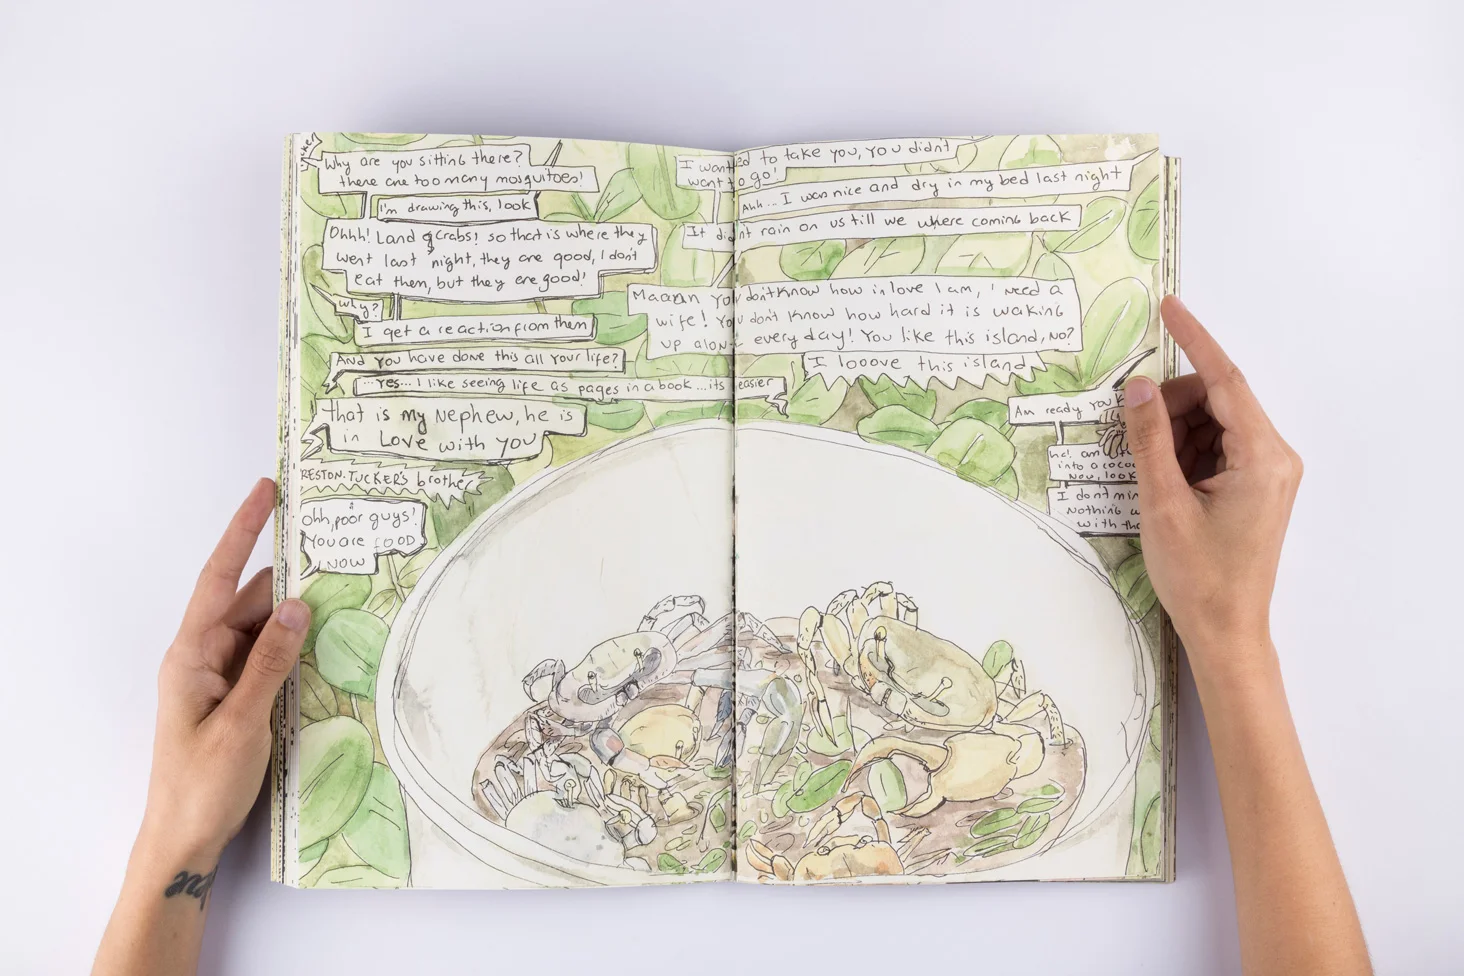 Why are you sitting there?
there are too many mosquitoes!
I'm drawing this, look
Ohhh! Land crabs! so that is where they
went last night, they are good, I don't
eat them, but they are good!
why?
I get a reaction from them
And you have done this all your life?
...Yes... I like seeing life as pages in a book...its easier
that is my Nephew, he is
in Love with you
RESTON. TUCKER'S brother
ohh, poor guys!
You are FOOD
NOW
I wanted to take you, you didn't
want to go!
Ahh... I was nice and dry in my bed last night
It didnt rain on us till we where coming back
Maaan you don't know how in love I am, I need a
wife! You don't know how hard it is waking
up alone every day! You like this island, no?
I looove this island
Am ready you k
ha! am
into a coco
Now, look
I dont min
Nothing w
with tha